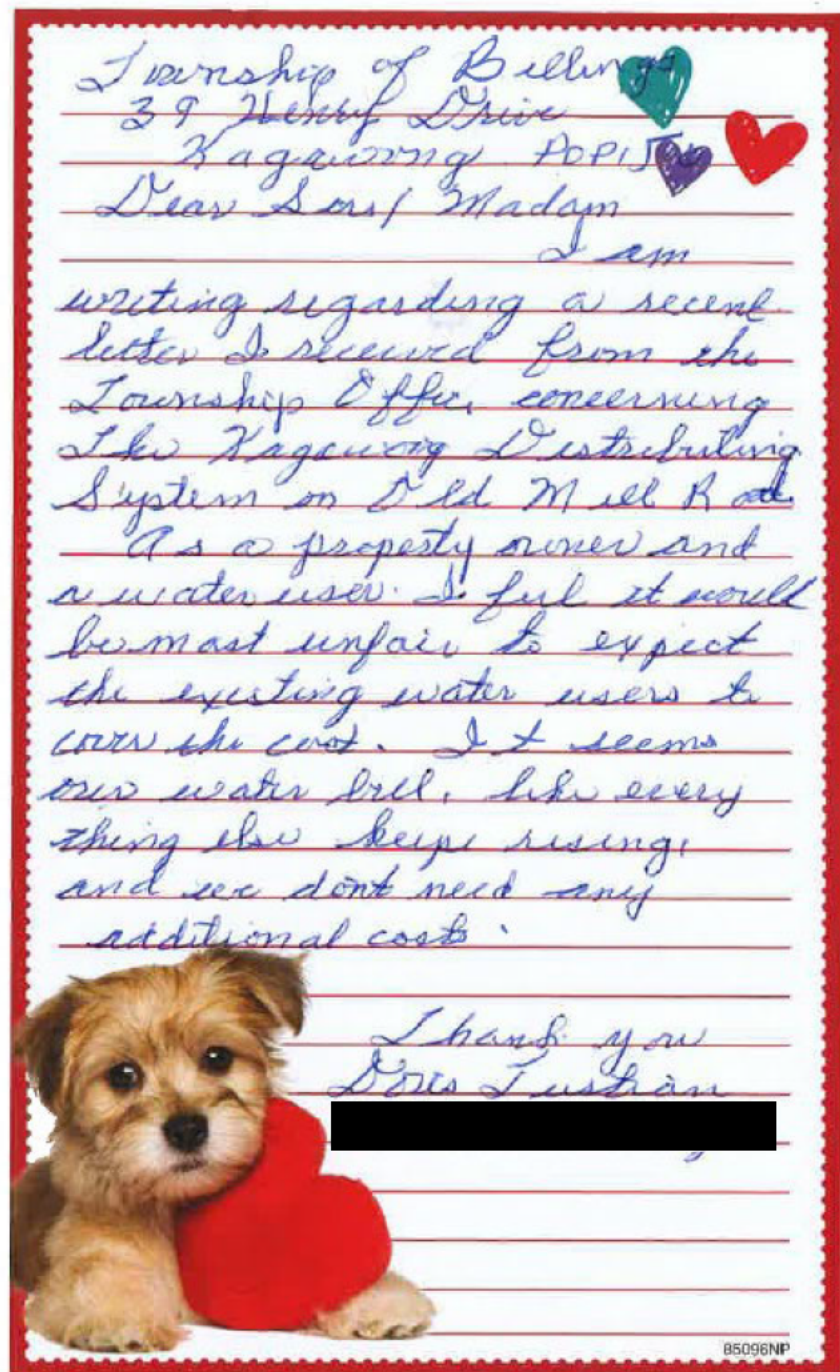 Township of Billings
39 Henry Drive
Kagawong POP1J0
Dear Sors/ Madam
I am
writing regarding a recent
letter I received from the
Township Office, concerning
The Kagawong Distributing
System on Old Mill Road
As a property owner and
a water user. I feel it would
be most unfair to expect
the existing water users to
cover the cost. It seems
our water bill, like every
thing else keeps rising,
and we don't need any
additional costs.
Thank you
Doris
85096NP